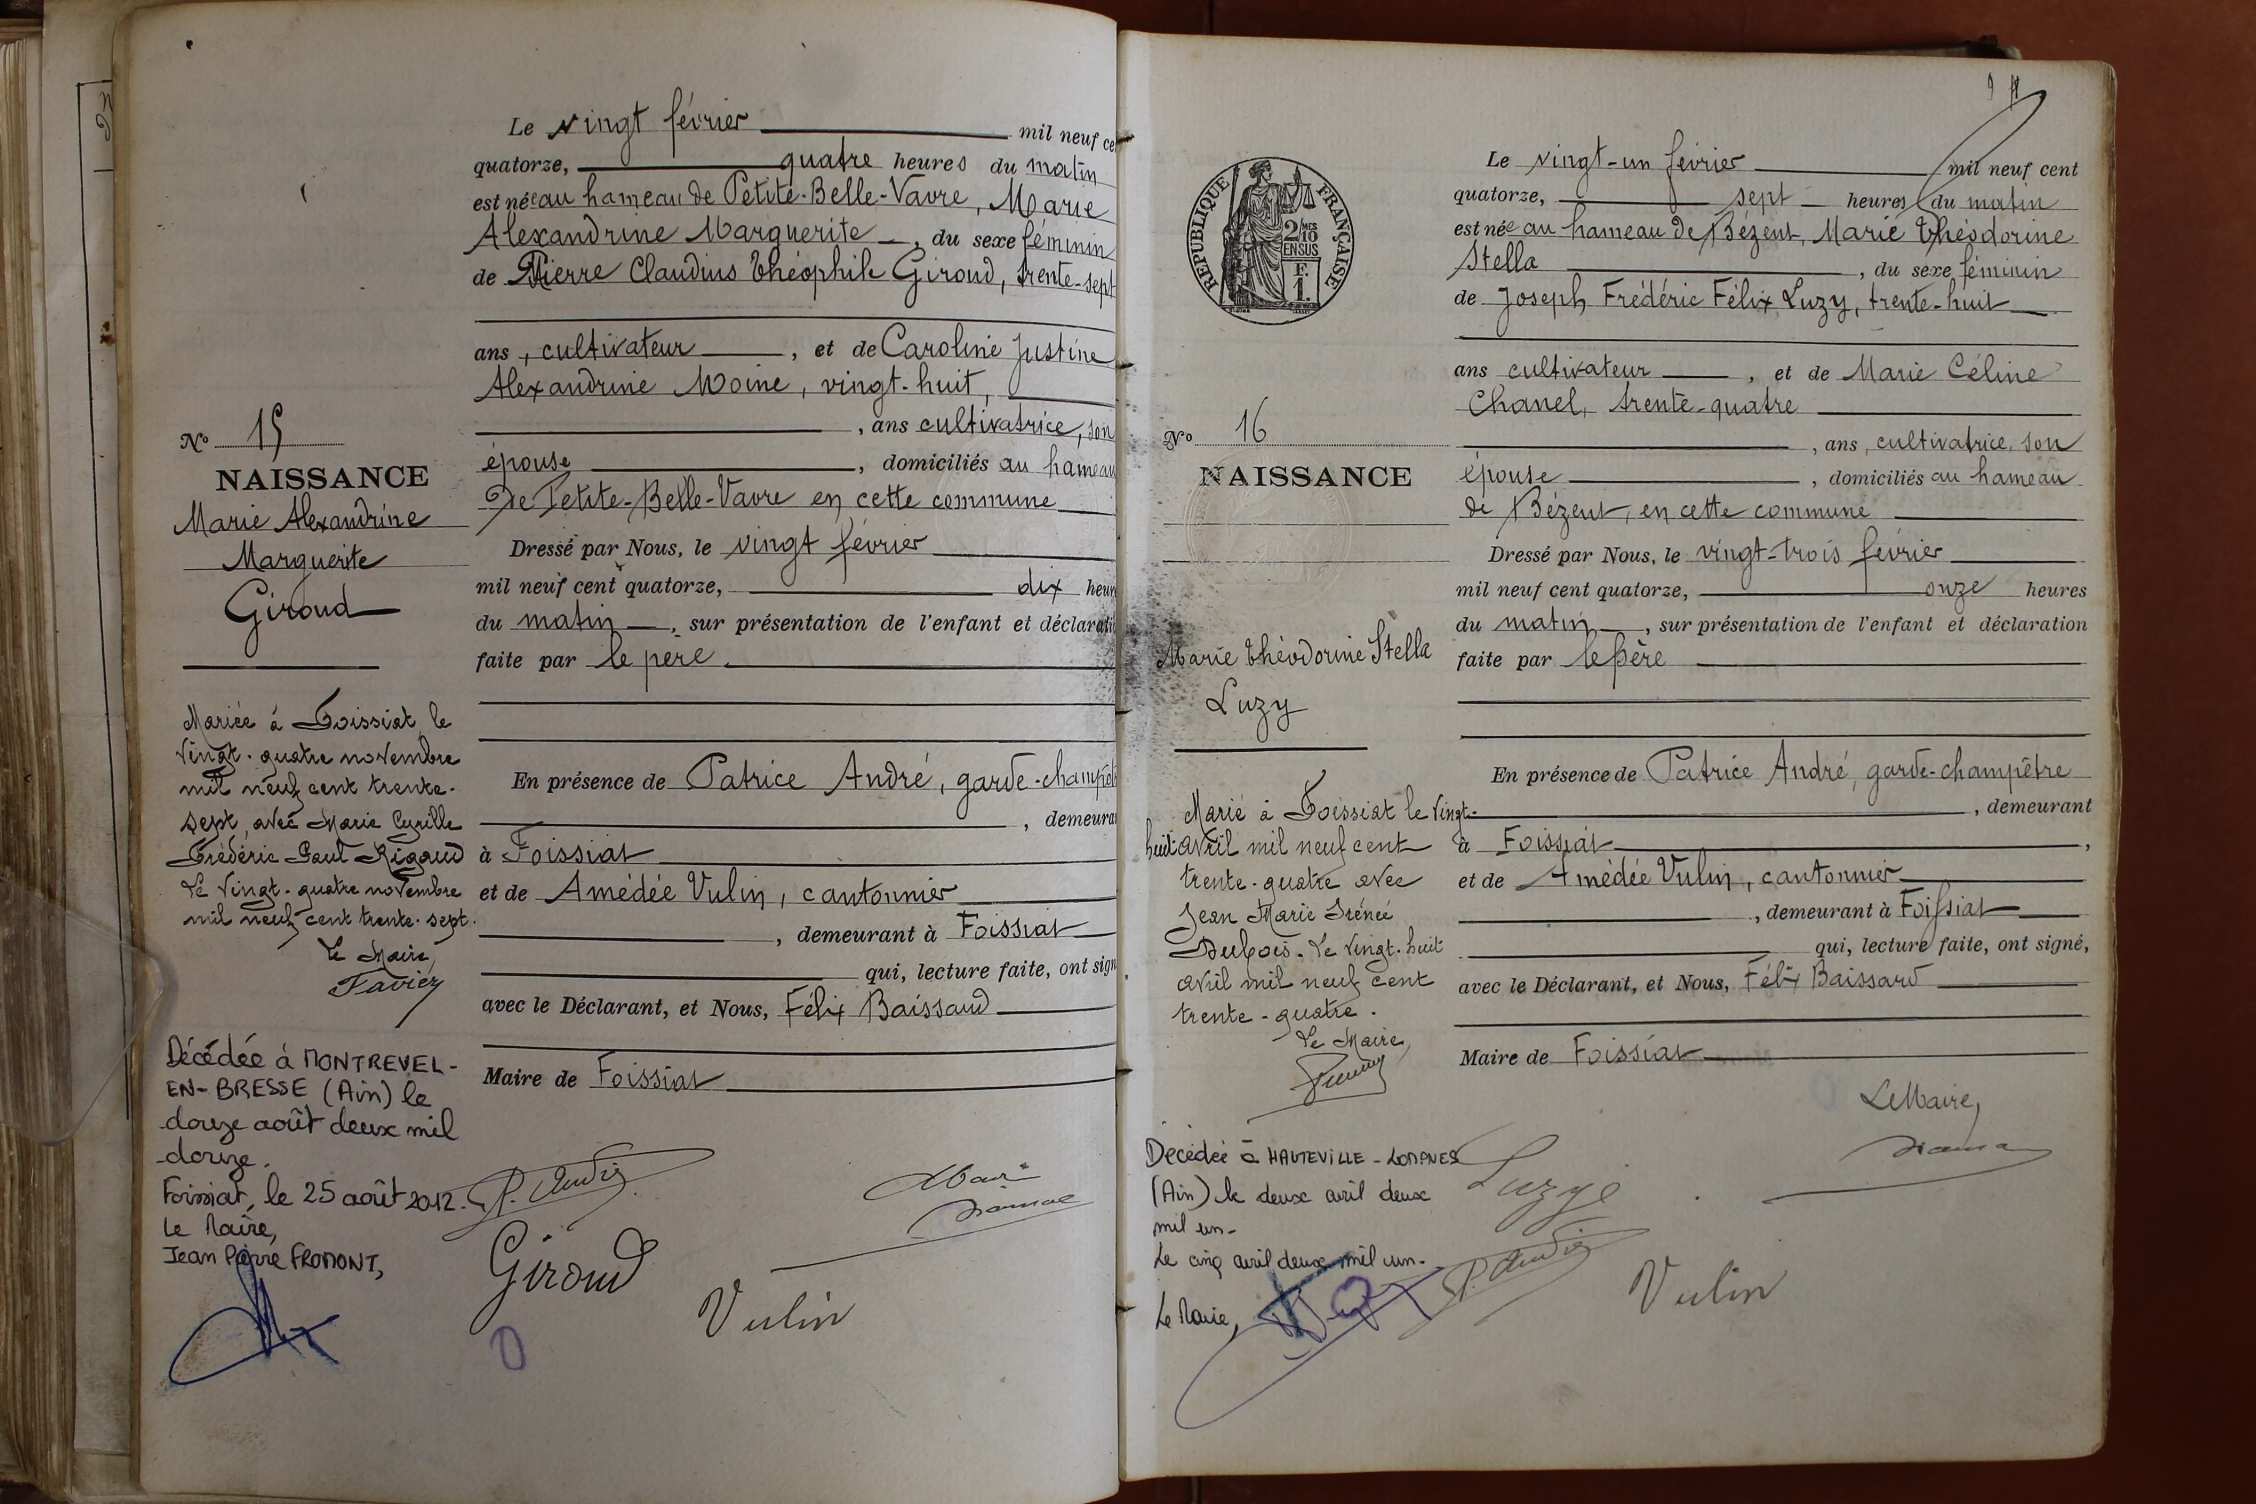 Le vingt février mil neuf ce
quatorze, quatre heures du matin
est née au hameau de Petite-Belle-Vavre, Marie
Alexandrine Marguerite, du sexe féminin
de Pierre Claudius Théophile Giroud, trente-sept
ans, cultivateur, et de Caroline Justine
Alexandrine Moine, vingt-huit,
, ans cultivatrice, son
épouse, domiciliés au hameau
de Petite-Belle-Vavre en cette commune
Dressé par Nous, le vingt février
mil neuf cent quatorze, dix heur
du matin, sur présentation de l'enfant et déclarati
faite par le père
En présence de Patrice André, garde-champêt
, demeura
à Foissiat
et de Amédée Vulin, cantonnier
, demeurant à Foissiat
qui, lecture faite, ont sign
avec le Déclarant, et Nous, Félix Baissard
Maire de Foissiat
P. André
Giroud
Vulin
No 15
NAISSANCE
Marie Alexandrine
Marguerite
Giroud
Mariée à Foissiat, le
vingt-quatre novembre
mil neuf cent trente-
sept, avec Marie Cyrille
Frédéric Paul Rigaud
Le vingt-quatre novembre
mil neuf cent trente-sept.
Le Maire,
Favier
Décédée à MONTREVEL-
EN-BRESSE (Ain) le
douze août deux mil
douze.
Foissiat, le 25 août 2012.
Le Maire,
Jean Pierre FROMONT,
Le vingt-un février mil neuf cent
quatorze, sept heures du matin
est née au hameau de Bézent, Marie Théodorine
Stella, du sexe féminin
de Joseph Frédéric Félix Luzy, trente-huit
ans cultivateur, et de Marie Céline
Chanel, trente-quatre
, ans, cultivatrice, son
épouse, domiciliés au hameau
de Bézent, en cette commune
Dressé par Nous, le vingt-trois février
mil neuf cent quatorze, onze heures
du matin, sur présentation de l'enfant et déclaration
faite par le père
En présence de Patrice André, garde-champêtre
, demeurant
à Foissiat,
et de Amédée Vulin, cantonnier
, demeurant à Foissiat
qui, lecture faite, ont signé,
avec le Déclarant, et Nous, Félix Baissard
Maire de Foissiat
Le Maire,
Luzy
P. André
Vulin
RÉPUBLIQUE FRANÇAISE
2/10
EN SUS
F.
1.
No 16
NAISSANCE
Marie Théodorine Stella
Luzy
Marié à Foissiat le vingt-
huit avril mil neuf cent
trente-quatre avec
Jean Marie Irénée
Dubois. Le vingt-huit
avril mil neuf cent
trente-quatre.
Le Maire,
Décédée à HAUTEVILLE-LOMPNES
(Ain) le deux avril deux
mil un-
Le cinq avril deux mil un-
Le Maire,